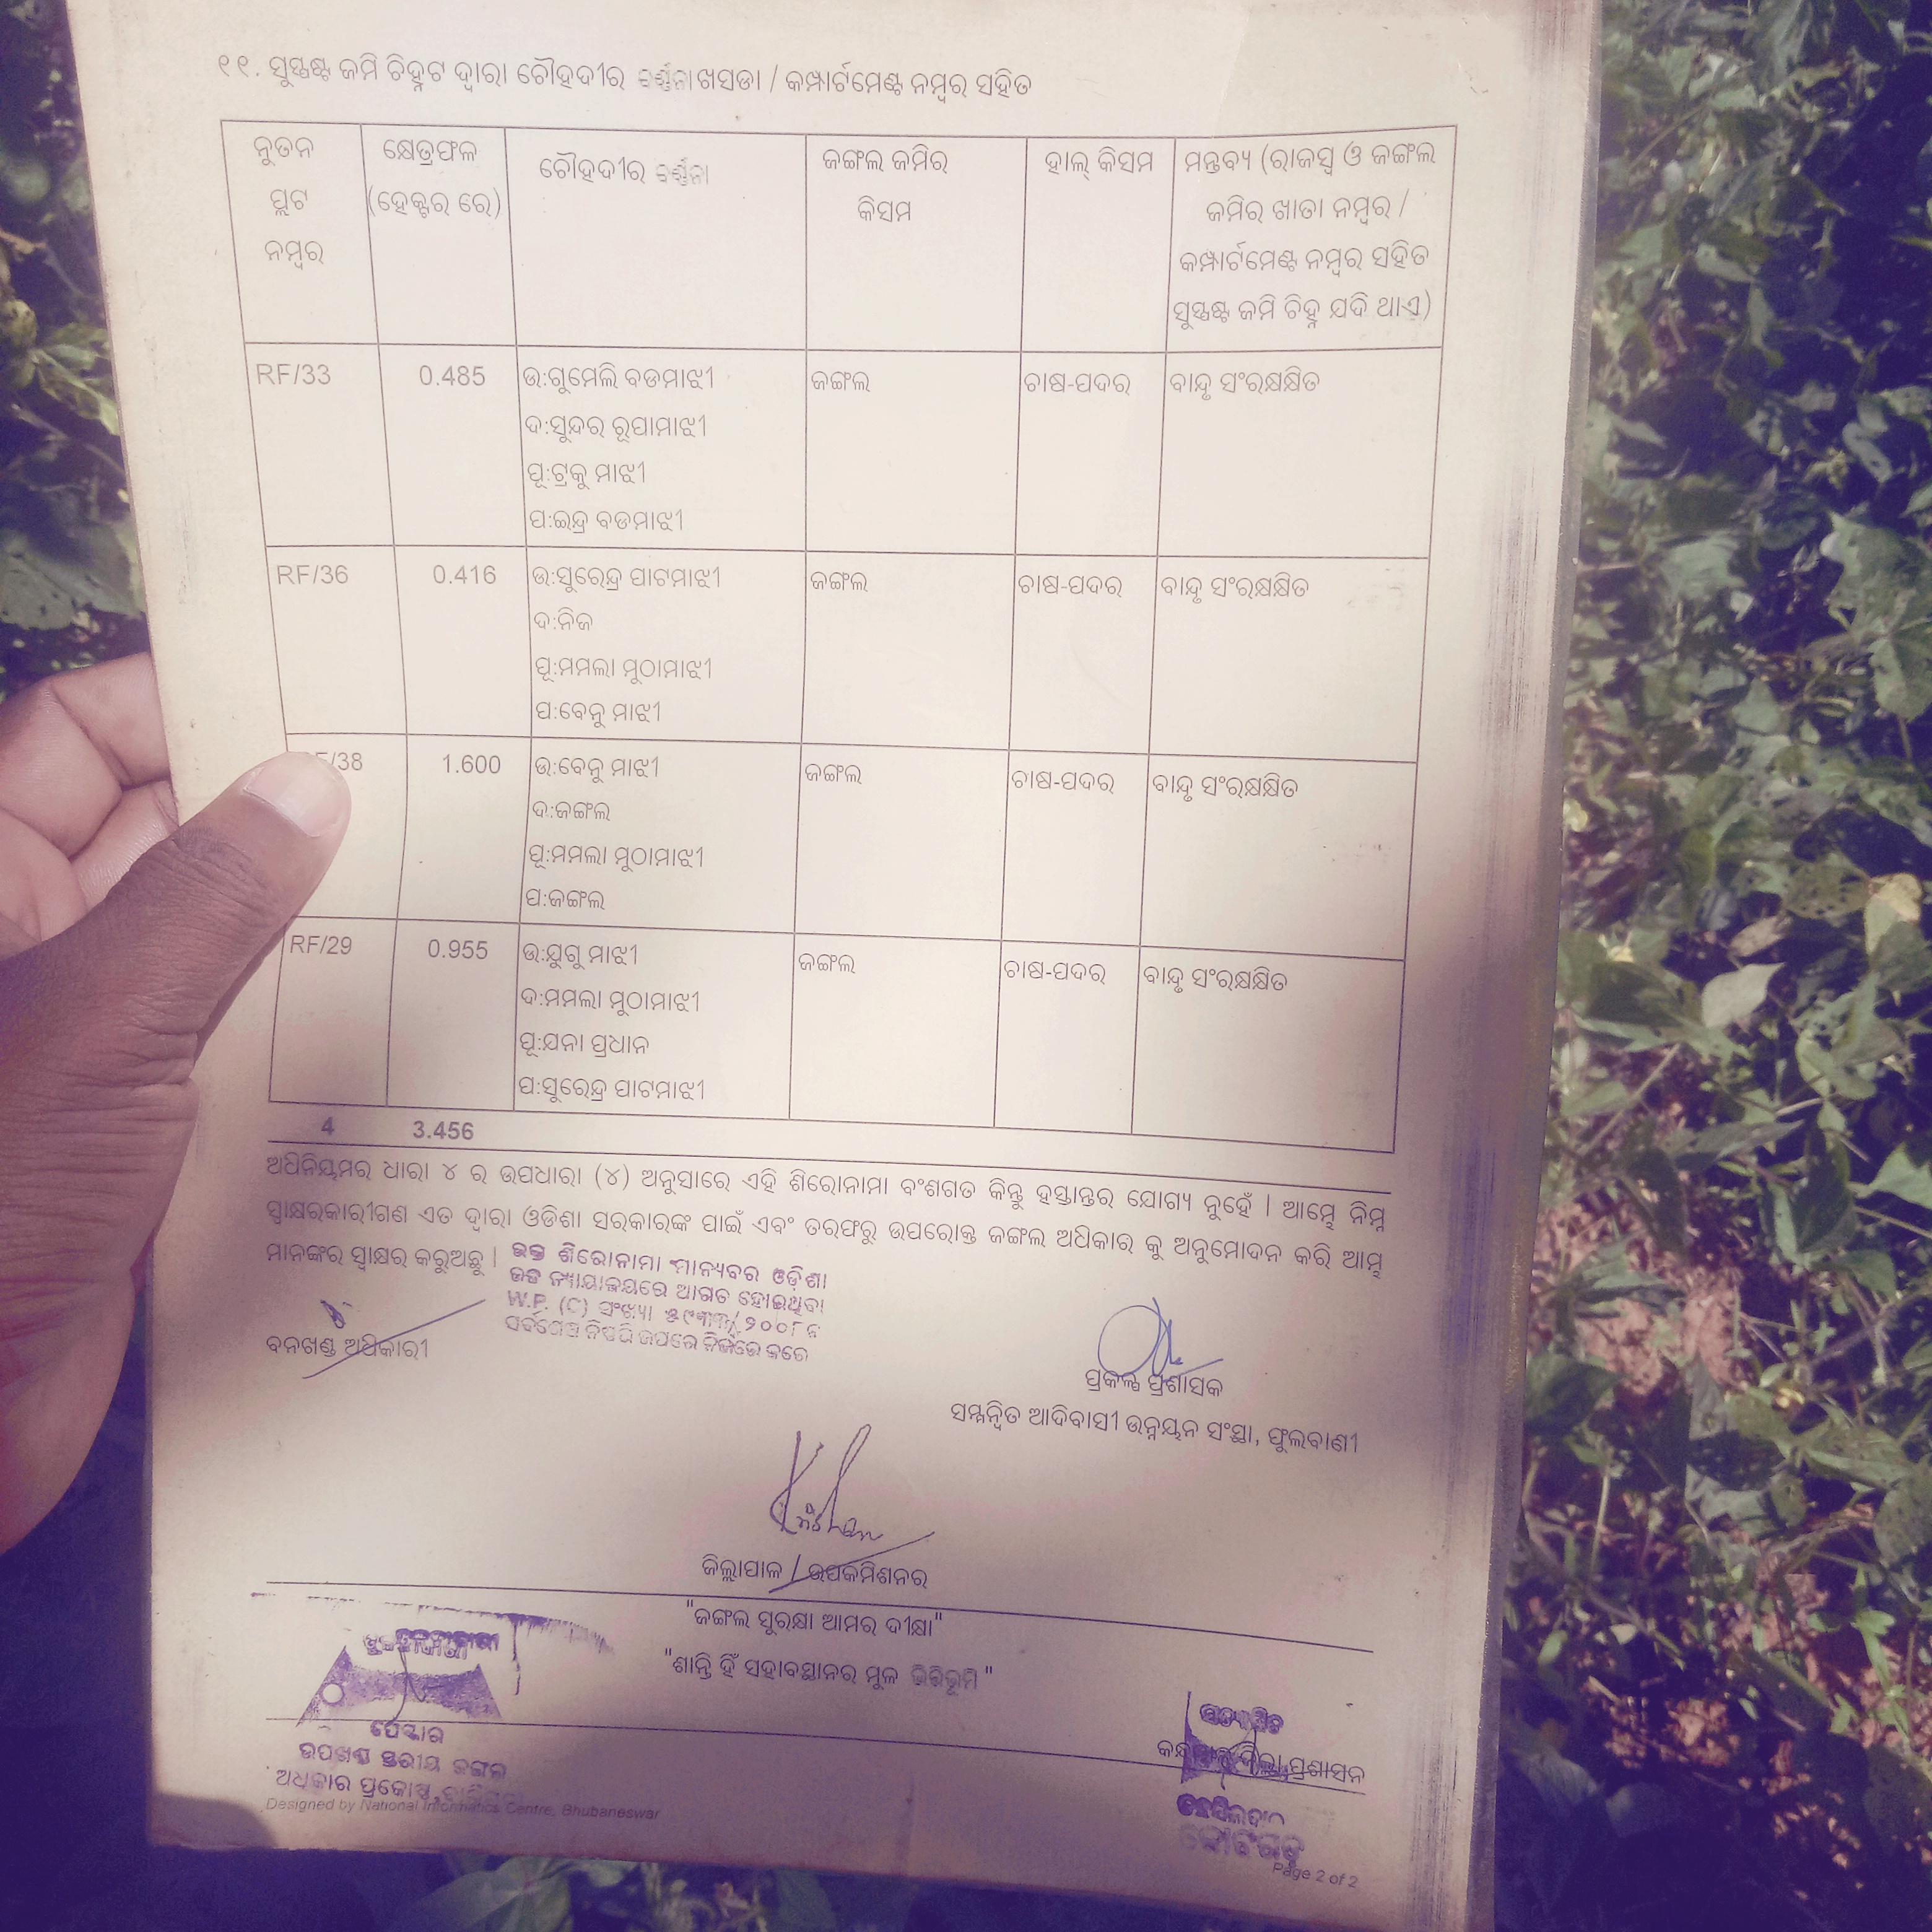 ୧୧. ସୁସ୍ପଷ୍ଟ ଜମି ଚିହ୍ନଟ ଦ୍ୱାରା ଚୌହଦୀର ବର୍ଣ୍ଣନା ଖସଡା / କମ୍ପାର୍ଟମେଣ୍ଟ ନମ୍ବର ସହିତ
ନୁତନ ପ୍ଲଟ ନମ୍ବର
କ୍ଷେତ୍ରଫଳ (ହେକ୍ଟର ରେ)
ଚୌହଦୀର ବର୍ଣ୍ଣନା
ଜଙ୍ଗଲ ଜମିର କିସମ
ହାଲ୍ କିସମ
ମନ୍ତବ୍ୟ (ରାଜସ୍ୱ ଓ ଜଙ୍ଗଲ
ଜମିର ଖାତା ନମ୍ବର /
କମ୍ପାର୍ଟମେଣ୍ଟ ନମ୍ବର ସହିତ
ସୁସ୍ପଷ୍ଟ ଜମି ଚିହ୍ନ ଯଦି ଥାଏ)
RF/33 0.485 ଉ:ଗୁମେଲି ବଡମାଝୀ ଜଙ୍ଗଲ ଚାଷ-ପଦର ବାନ୍ଦୃ ସଂରକ୍ଷକ୍ଷିତ
ଦ:ସୁନ୍ଦର ରୂପାମାଝୀ
ପୂ:ଟ୍ରକୁ ମାଝୀ
ପ:ଇନ୍ଦ୍ର ବଡମାଝୀ
RF/36 0.416 ଉ:ସୁରେନ୍ଦ୍ର ପାଟମାଝୀ ଜଙ୍ଗଲ ଚାଷ-ପଦର ବାନ୍ଦୃ ସଂରକ୍ଷକ୍ଷିତ
ଦ:ନିଜ
ପୂ:ମମଲା ମୁଠାମାଝୀ
ପ:ବେନୁ ମାଝୀ
/38 1.600 ଉ:ବେନୁ ମାଝୀ ଜଙ୍ଗଲ ଚାଷ-ପଦର ବାନ୍ଦୃ ସଂରକ୍ଷକ୍ଷିତ
ଦ:ଜଙ୍ଗଲ
ପୂ:ମମଲା ମୁଠାମାଝୀ
ପ:ଜଙ୍ଗଲ
RF/29 0.955 ଉ:ଯୁଗୁ ମାଝୀ ଜଙ୍ଗଲ ଚାଷ-ପଦର ବାନ୍ଦୃ ସଂରକ୍ଷକ୍ଷିତ
ଦ:ମମଲା ମୁଠାମାଝୀ
ପୂ:ଯନା ପ୍ରଧାନ
ପ:ସୁରେନ୍ଦ୍ର ପାଟମାଝୀ
4 3.456
ଅଧିନିୟମର ଧାରା ୪ ର ଉପଧାରା (୪) ଅନୁସାରେ ଏହି ଶିରୋନାମା ବଂଶଗତ କିନ୍ତୁ ହସ୍ତାନ୍ତର ଯୋଗ୍ୟ ନୁହେଁ । ଆମ୍ଭେ ନିମ୍ନ
ସ୍ୱାକ୍ଷରକାରୀଗଣ ଏତ ଦ୍ୱାରା ଓଡିଶା ସରକାରଙ୍କ ପାଇଁ ଏବଂ ତରଫରୁ ଉପରୋକ୍ତ ଜଙ୍ଗଲ ଅଧିକାର କୁ ଅନୁମୋଦନ କରି ଆମ୍ଭ
ମାନଙ୍କର ସ୍ୱାକ୍ଷର କରୁଅଛୁ ।
ଉକ୍ତ ଶିରୋନାମା ମାନ୍ୟବର ଓଡ଼ିଶା
ଉଚ୍ଚ ନ୍ୟାୟାଳୟରେ ଆଗତ ହୋଇଥିବା
W.P. (C) ସଂଖ୍ୟା
ବନଖଣ୍ଡ ଅଧିକାରୀ
ପ୍ରକଳ୍ପ ପ୍ରଶାସକ
ସମ୍ମନ୍ୱିତ ଆଦିବାସୀ ଉନ୍ନୟନ ସଂସ୍ଥା, ଫୁଲବାଣୀ
ଜିଲ୍ଲାପାଳ / ଉପକମିଶନର
"ଜଙ୍ଗଲ ସୁରକ୍ଷା ଆମର ଦୀକ୍ଷା"
"ଶାନ୍ତି ହିଁ ସହାବସ୍ଥାନର ମୂଳ ଭିତ୍ତିଭୂମି"
ପେସ୍କାର
ଉପଖଣ୍ଡ ସ୍ତରୀୟ ଜଙ୍ଗଲ
ଅଧିକାର ପ୍ରକୋଷ୍ଠ,
ଜିଲ୍ଲା ପ୍ରଶାସନ
ତହସିଲଦାର
Designed by National Informatics Centre, Bhubaneswar
Page 2 of 2